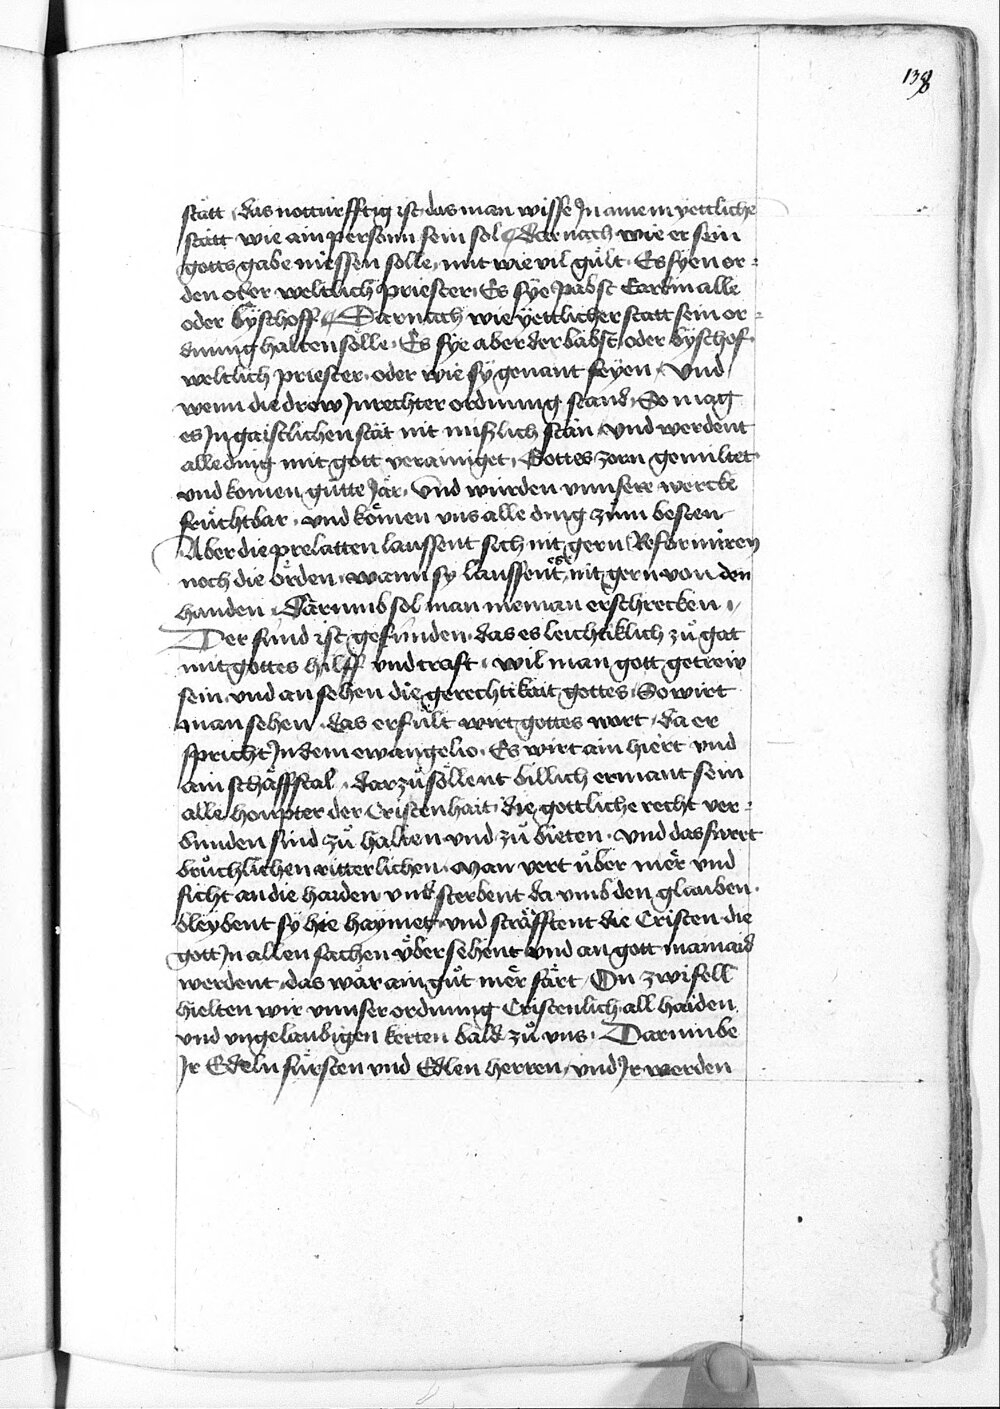 138
stätt · das notturfftig ist das man wisse Jn ainem yettliche
stätt wie ain personn sein sol / darnach wie er sein
gotts gabe niessen solle / mit wie vil gult · Es syen or-
den oder weltlich priester · Es sÿe Pabst Cardinalle
oder bÿschoff / Darnach wie yettlicher statt sein or-
dnung halten sölle · Es sÿe aber der babst oder bÿschof
weltlich priester · oder wie sÿ genant seyen / Und
wenn die drew Jn rechter ordnung stand · So mag
es Jn gaistlichen stät nit misslich stän / vnd werdent
alle ding mit gott verainiget / Gottes zorn gemiltet
vnd komen gůtte Jär · Vnd wurden vnnsere wercke
fruchtbar · vnd kömen vns alle ding zům besten
Aber die prelatten laussent sich nit gern Reformiren
noch die örden · wann sy laussent es nit gern von den
handen · Darumb sol man nieman erschrecken ·
Der fund ist gefunden · das es leichtiklich zů gat
mit gottes hilff vnd craft · wil man gott getrew
sein vnd an sehen die gerechtikait gottes · So wirt
man sehen · das erfult wirt gottes wort · da er
spricht Jn dem ewangelio · Es wirt ain hiert vnd
ain schäffstal · darzů söllent billich ermant sein
alle houpter der Cristenhait · die gottliche recht ver-
bunden sind zů halten vnd zů bieten · vnd das swert
brůchlichen ritterlichen · Man vert über mer vnd
ficht an die haiden vnd sterbent da vmb den glauben ·
bleybent sÿ hie haymet vnd sträfftent die Cristen die
gott Jn allen sachen übersehent vnd an gott mainaid
werdent · das wär ain gůt mer färt / On zwifell
hielten wir vnnser ordnung Cristenlich all haiden
vnd vngelaubigen kerten bald zů vns · Darumbe
Jr Edeln fürsten vnd Edlen herren / vnd Jr werden